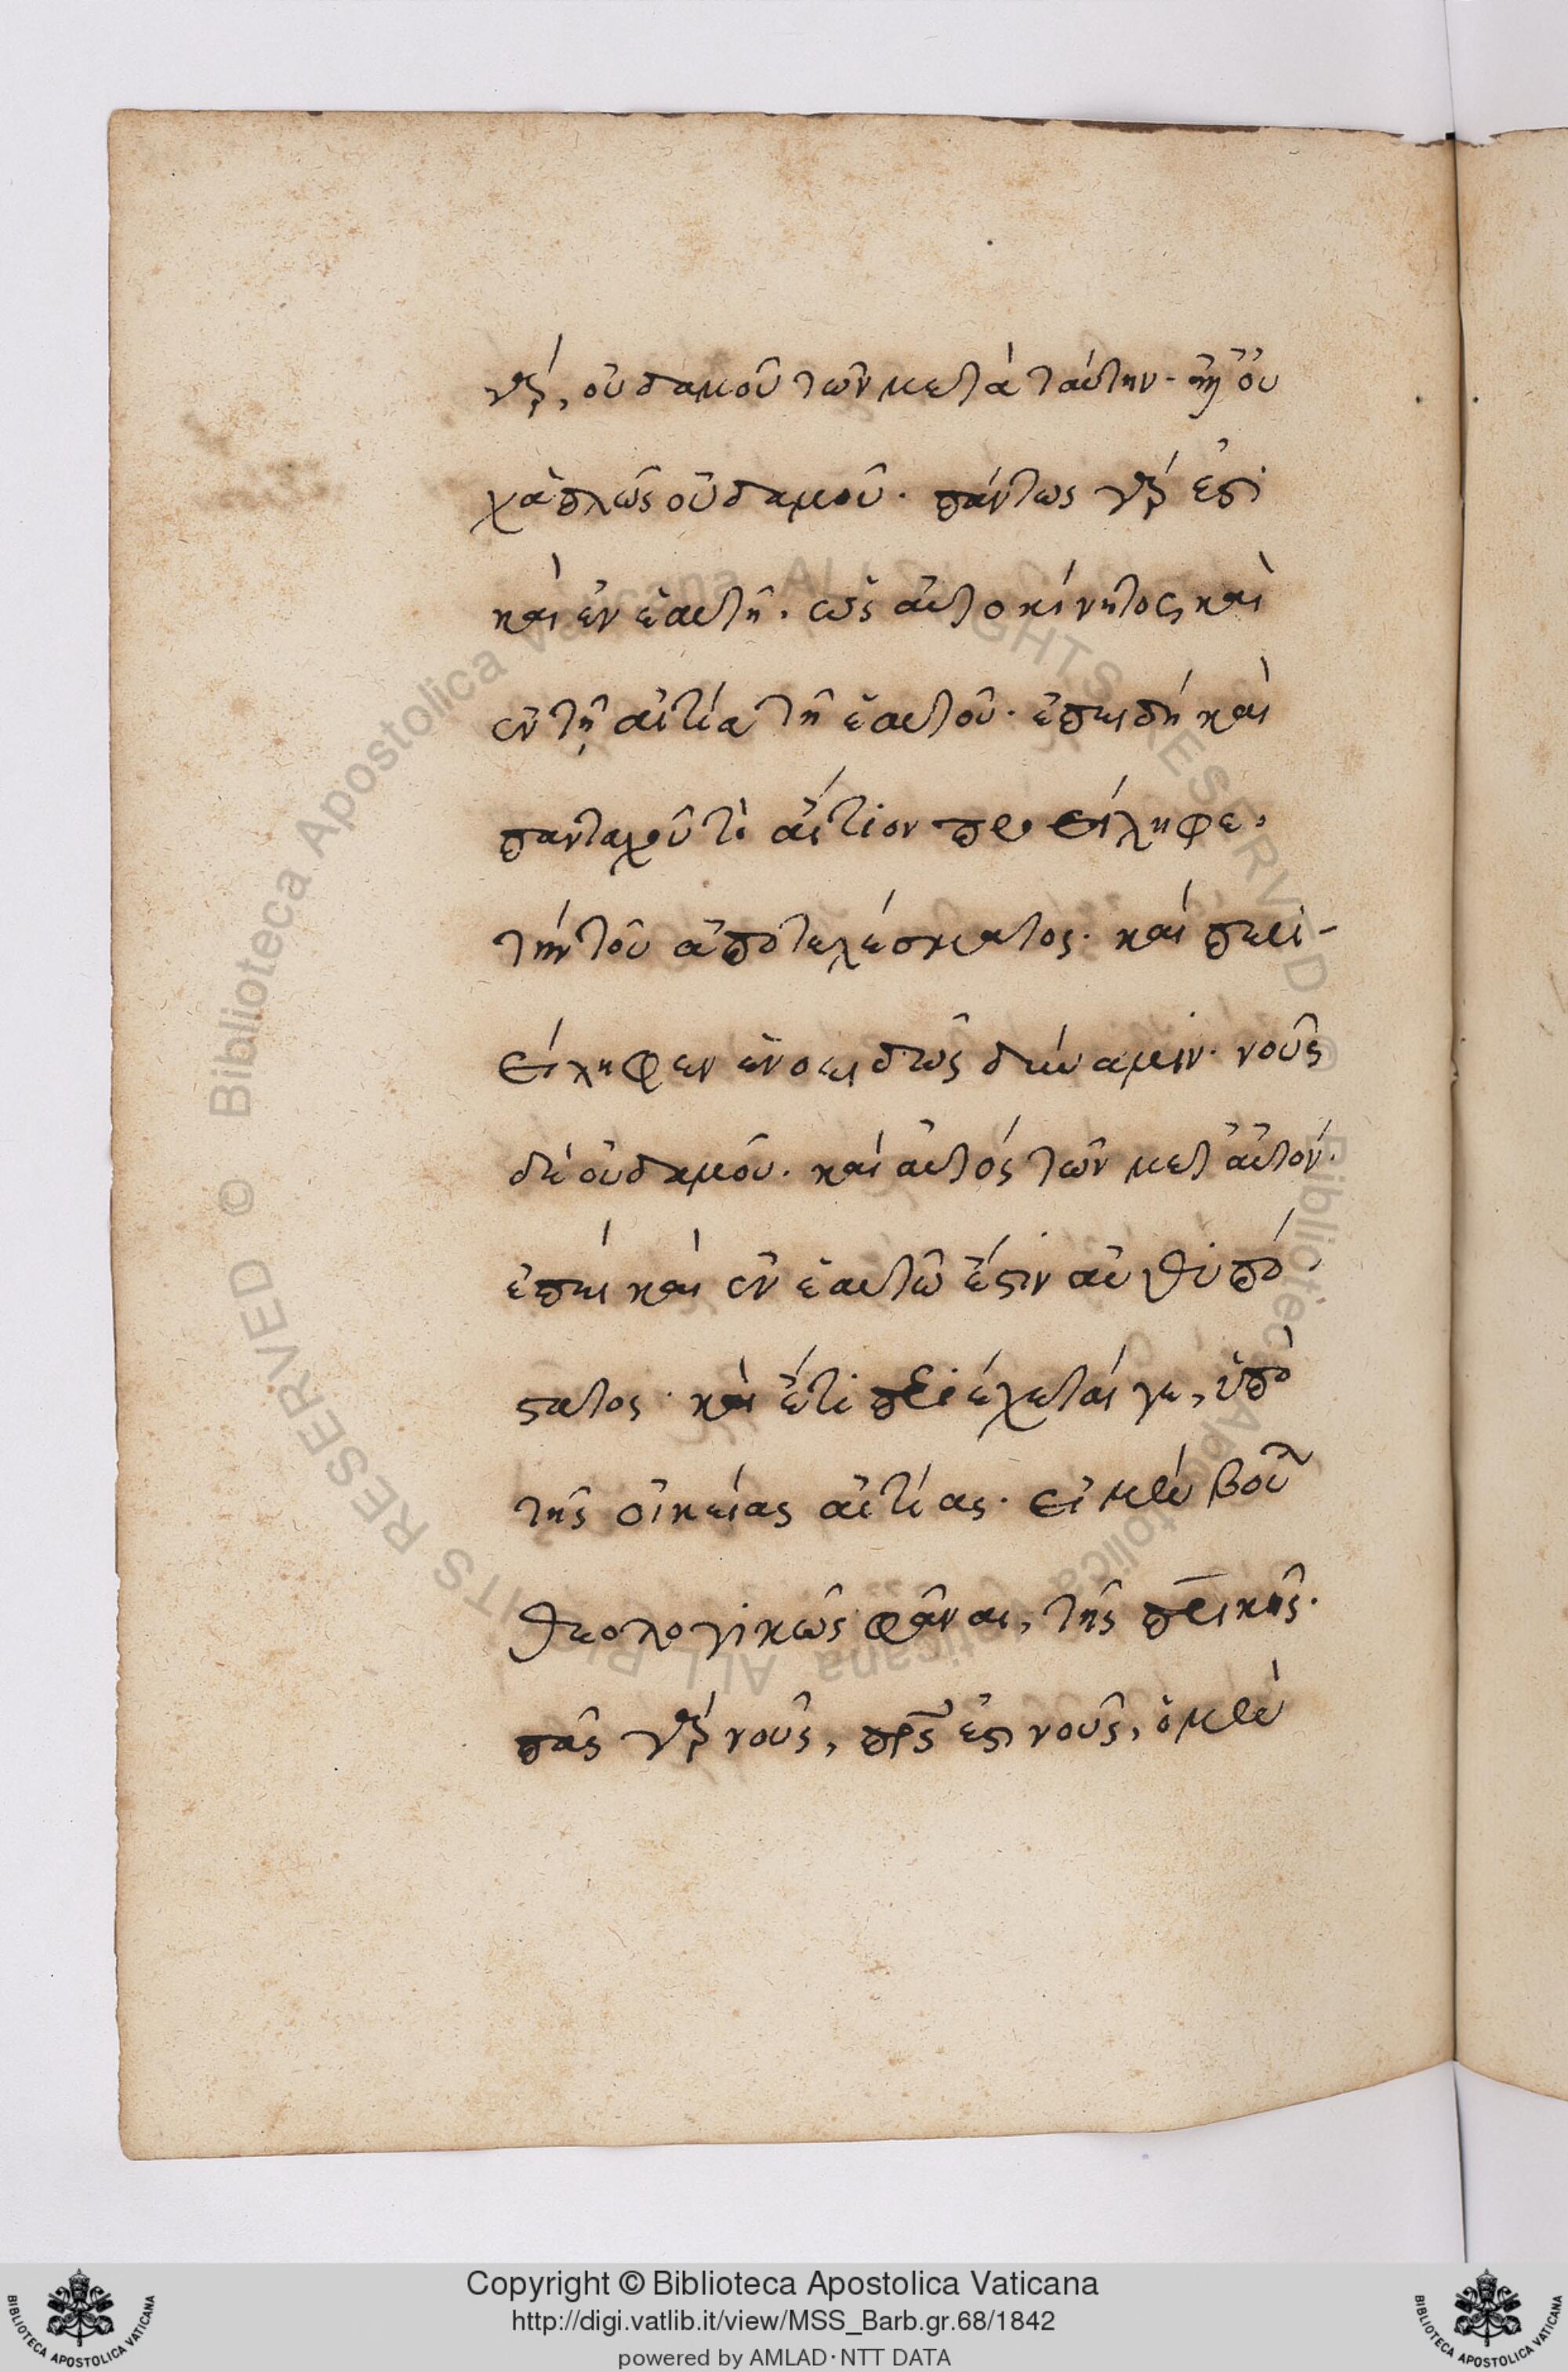 γὰρ, οὐδαμοῦ τῶν μετὰ ταύτην· οὐ
χἁπλῶς οὐδαμοῦ. πάντως γάρ ἐστι
καὶ ἐν ἑαυτῆ. ὡς αὐτοκίνητος, καὶ
ἐν τῇ αἰτία τῆ ἑαυτοῦ. ἐπειδὴ καὶ
πανταχοῦ τὸ αἴτιον προείληφε.
τὴν τοῦ ἀποτελέσματος. καὶ περι-
είληφεν ἑνοειδῶς δύναμιν. νοῦς
δὲ οὐδαμοῦ. καὶ αὐτὸς τῶν μετ αὐτόν.
ἐπεὶ καὶ ἐν ἑαυτῶ ἔστιν αὐθυπό
στατος. καὶ ἔτι περιέχεταί γε, ὑπὸ
τῆς οἰκείας αἰτίας. εἰ μὲν βούλ
θεολογικῶς φάναι, τῆς πρικῆς.
πᾶς γὰρ νοῦς, πρς ἐστι νοῦς, ὁ μὲν
Copyright © Biblioteca Apostolica Vaticana
http://digi.vatlib.it/view/MSS_Barb.gr.68/1842
powered by AMLAD·NTT DATA
BIBLIOTECA APOSTOLICA VATICANA
BIBLIOTECA APOSTOLICA VATICANA
© Biblioteca Apostolica Vaticana ALL RIGHTS RESERVED
© Biblioteca Apostolica Vaticana ALL RIGHTS RESERVED